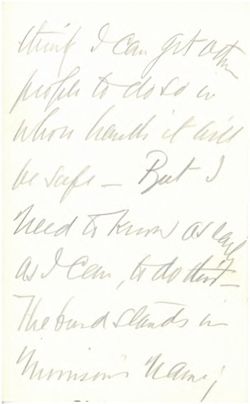 think I can get other
people to do so in
whose hands it will
be safe — But I
need to know as early
as I can, to do this —
The bond stands in
Morrison's name;